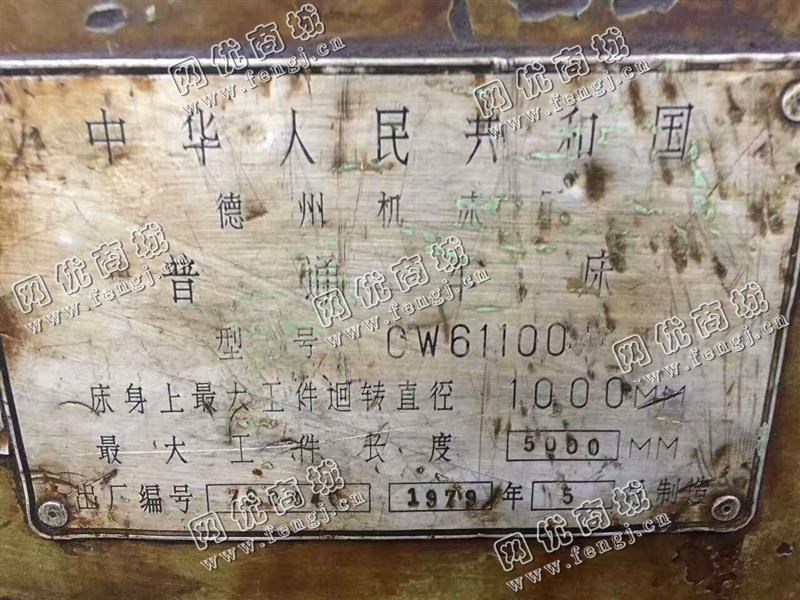 中华人民共和国
德州机床
普通车床
型号 CW61100
床身上最大工件迴转直径 1000MM
最大工件长度 5000MM
出厂编号 1979年5 制造
网优商城
www.fengj.cn
网优商城
www.fengj.cn
网优商城
www.fengj.cn
网优商城
www.fengj.cn
网优商城
www.fengj.cn
网优商城
www.fengj.cn
网优商城
www.fengj.cn